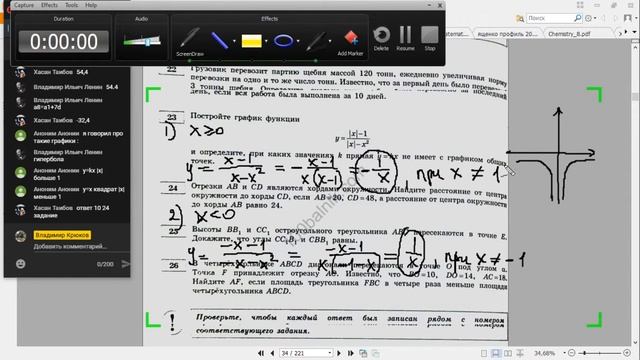 Capture Effects Tools Help
Duration
Audio
Effects
0:00:00
ScreenDraw
Add Marker
Delete
Resume
Stop
Поиск
ященко профиль 20...
Chemistry_8.pdf
Хасан Тамбов 54,4
Владимир Ильич Ленин
54.4
Владимир Ильич Ленин
a8=a1+7d
Хасан Тамбов -32,4
Аноним Анонин я говорил про
такие графики :
Владимир Ильич Ленин
гипербола
Аноним Анонин y=kx |x|
больше 1
Аноним Анонин y=x квадрат |x|
меньше 1
Хасан Тамбов ответ 10 24
задание
Владимир Крюков
Добавить комментарий...
0/200
22 Грузовик перевозит партию щебня массой 120 тонн, ежедневно увеличивая норму
перевозки на одно и то же число тонн. Известно, что за первый день было перевезено
3 тонны щебня.
день, если вся работа была выполнена за 10 дней.
23 Постройте график функции
1) x⩾0
y=|x|-1/|x|-x²
и определите, при каких значениях k прямая y=kx не имеет с графиком общих
точек.
y = x-1/x-x² = - x-1/x(x-1) = -1/x, при x ≠ 1
24 Отрезки AB и CD являются хордами окружности. Найдите расстояние от центра
окружности до хорды CD, если AB=20, CD=48, а расстояние от центра окружности
до хорды AB равно 24.
2) x<0
25 Высоты BB₁ и CC₁ остроугольного треугольника ABC пересекаются в точке E.
Докажите, что углы CC₁B₁ и CBB₁ равны.
y = -x-1/-x-x² = -x-1/x(-1-x) = 1/x, при x ≠ -1
26 В четырёхугольнике ABCD диагонали пересекаются в точке O под углом α.
Точка F принадлежит отрезку AO. Известно, что BO=10, DO=14, AC=18.
Найдите AF, если площадь треугольника FBC в четыре раза меньше площади
четырёхугольника ABCD.
! Проверьте, чтобы каждый ответ был записан рядом с номером
соответствующего задания.
34 / 221
34,68%